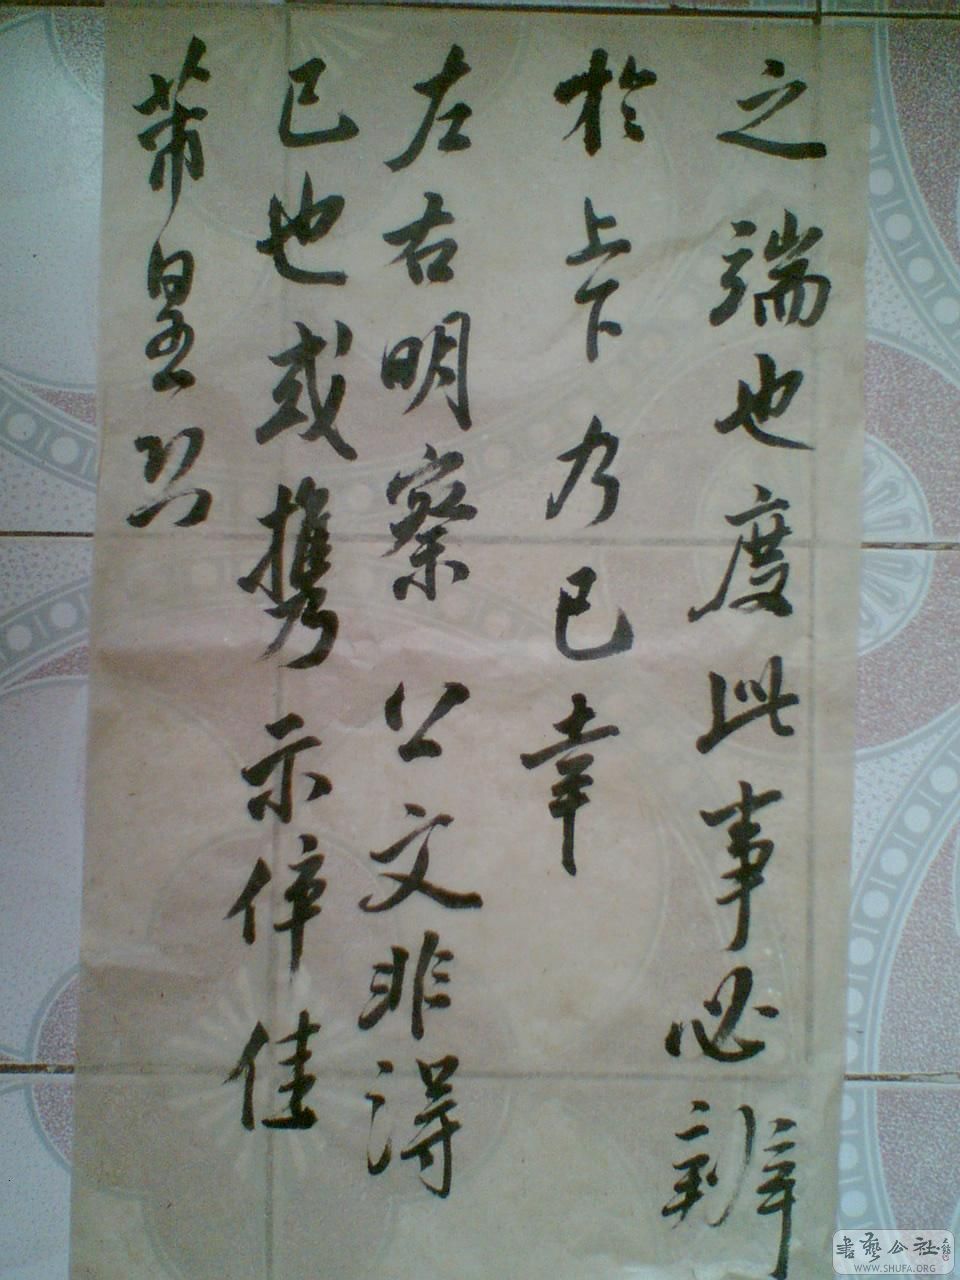 之端也度此事必辦
於上下乃已幸
左右明察公文非得
已也或携示倅佳
芾皇恐
書藝公社
WWW.SHUFA.ORG